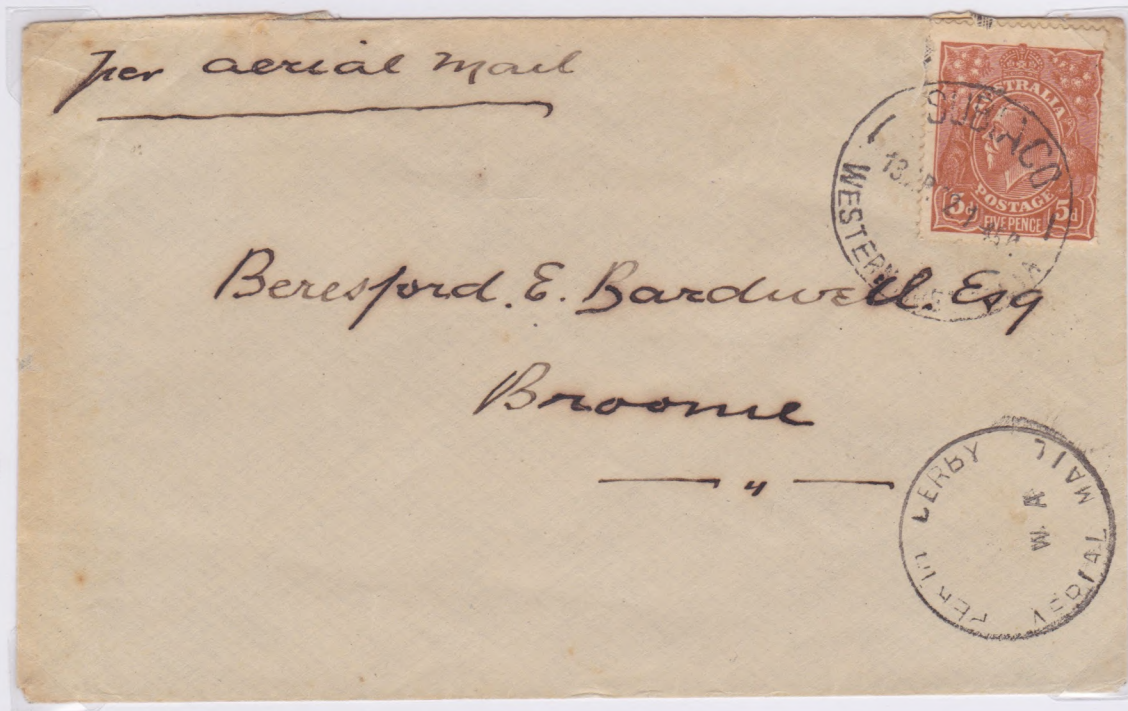 per aerial Mail
AUSTRALIA
POSTAGE
5d FIVE PENCE 5d
SUBIACO
13 AP 29
WESTERN
Beresford. E. Bardwell. Esq
Broome
PERTH DERBY
AERIAL MAIL
W A